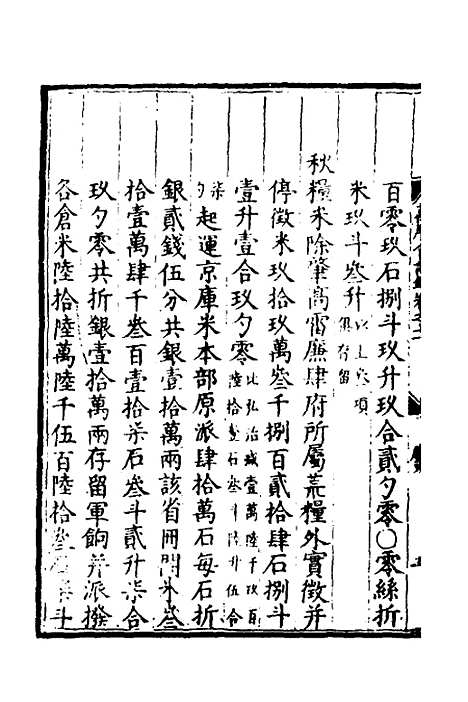 百零玖石捌斗玖升玖合貳勺零〇零絲折
米玖斗叁升以上叁項俱存留
秋糧米除肇高雷廉肆府所屬荒糧外實徵并
停徵米玖拾玖萬叁千捌百貳拾肆石捌斗
壹升壹合玖勺零比弘治減壹萬陸千玖百陸拾壹石叁斗陸升伍合
柒勺起運京庫米本部原派肆拾萬石每石折
銀貳錢伍分共銀壹拾萬兩該省冊開米叁
拾壹萬肆千叁百壹拾柒石叁斗貳升柒合
玖勺零共折銀壹拾萬兩存留軍餉并派撥
各倉米陸拾陸萬陸千伍百陸拾叁石柒斗